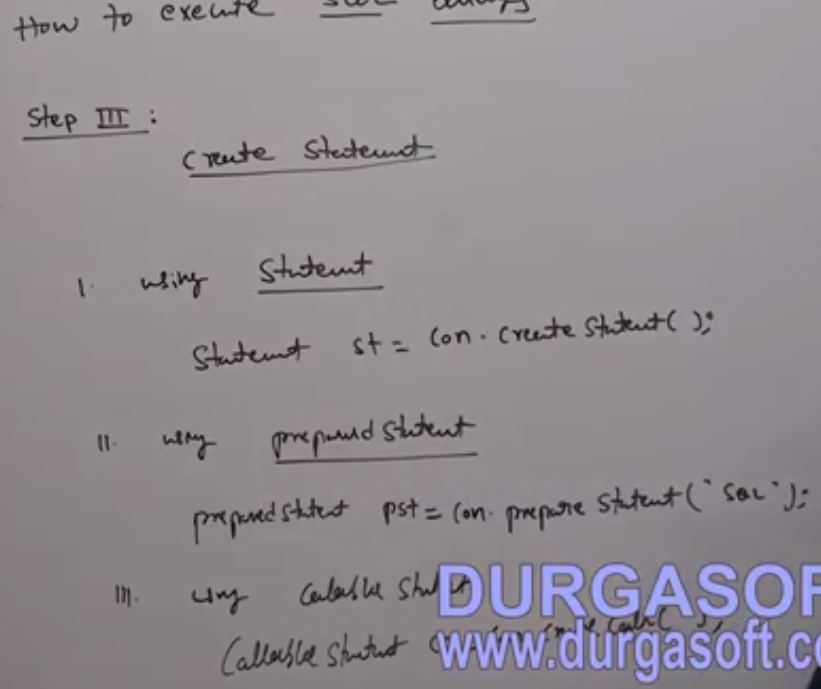 How to execute
Step III :
Create Statement
I. using Statement
Statement st = con.createStatement( );
II. using preparedStatement
preparedStatement pst = con.prepareStatement("SQL");
III. using Callable Statement
Callable Statement
DURGASOF
www.durgasoft.co